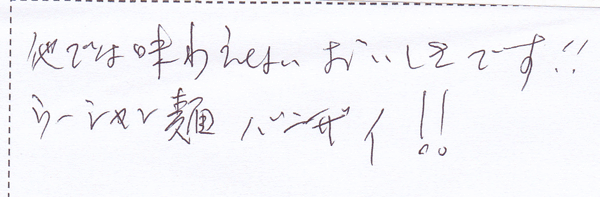 他では味わえないおいしさです!!
ラーシャン麺バンザイ!!